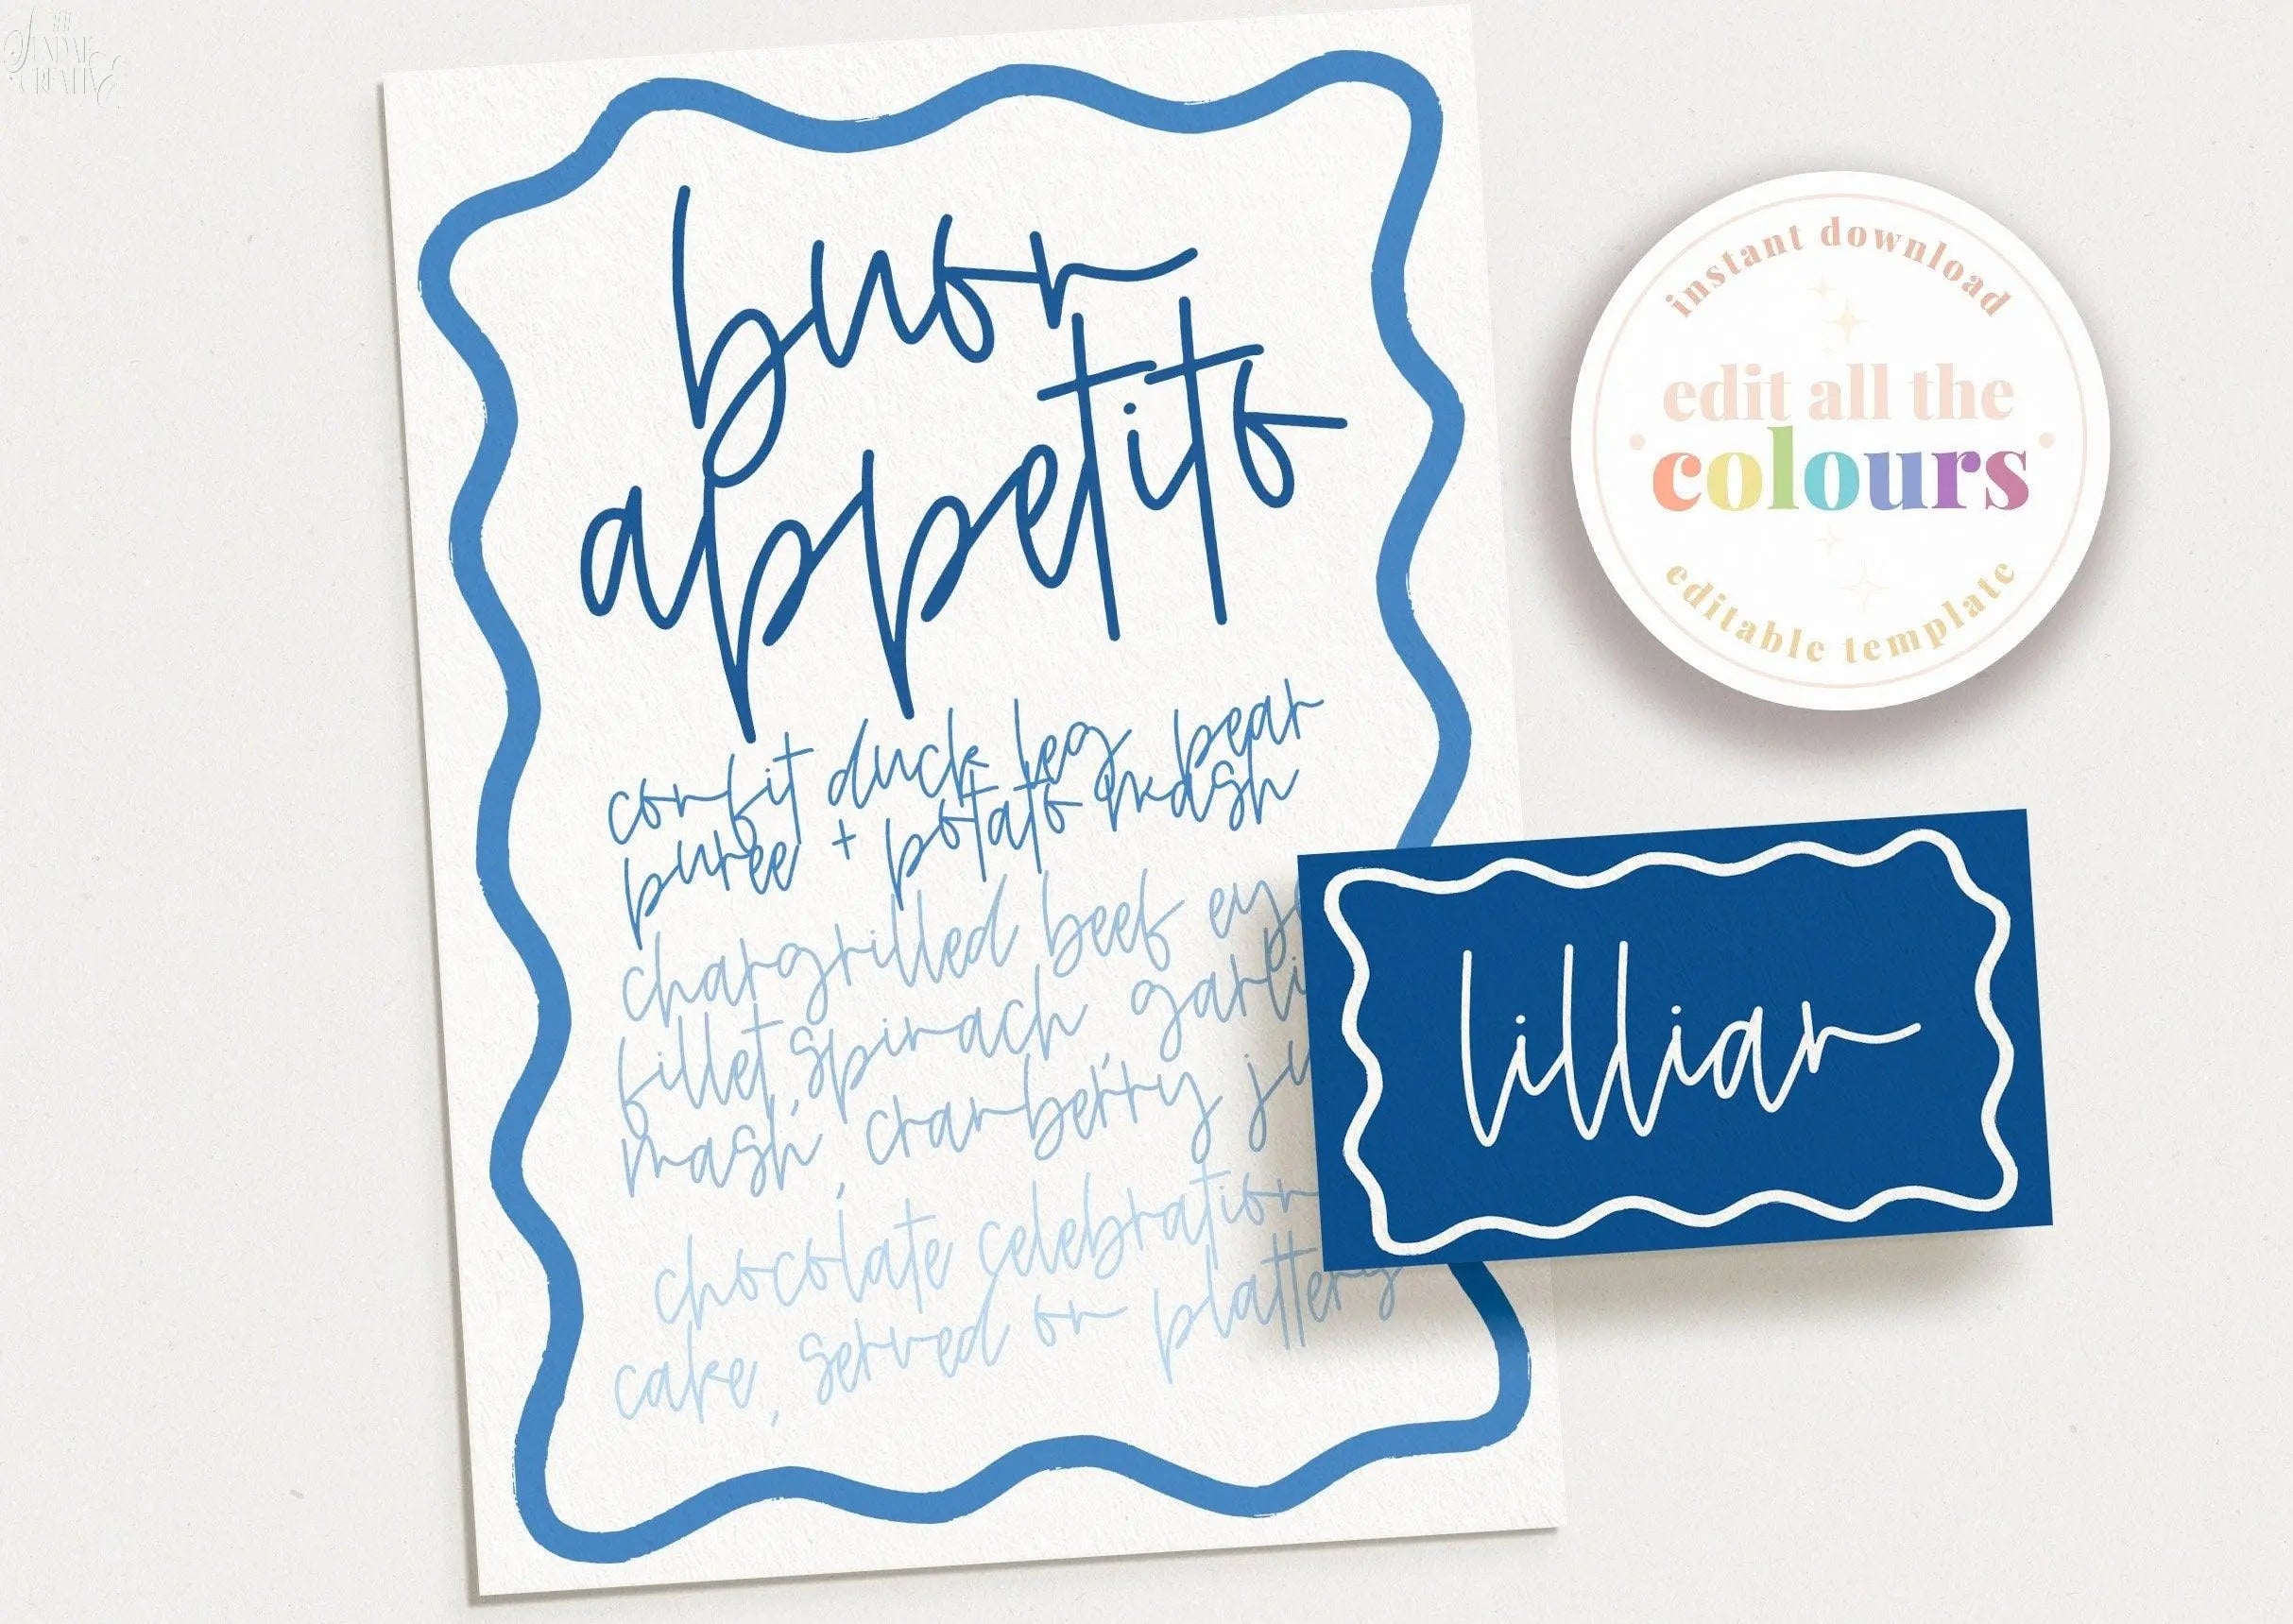 buon
appetito
confit duck leg pear
puree + potato mash
chargrilled beef eye
fillet, spinach garli
mash, cranberry ju
chocolate celebration
cake, served on platters
lillian
instant download
edit all the
colours
editable template